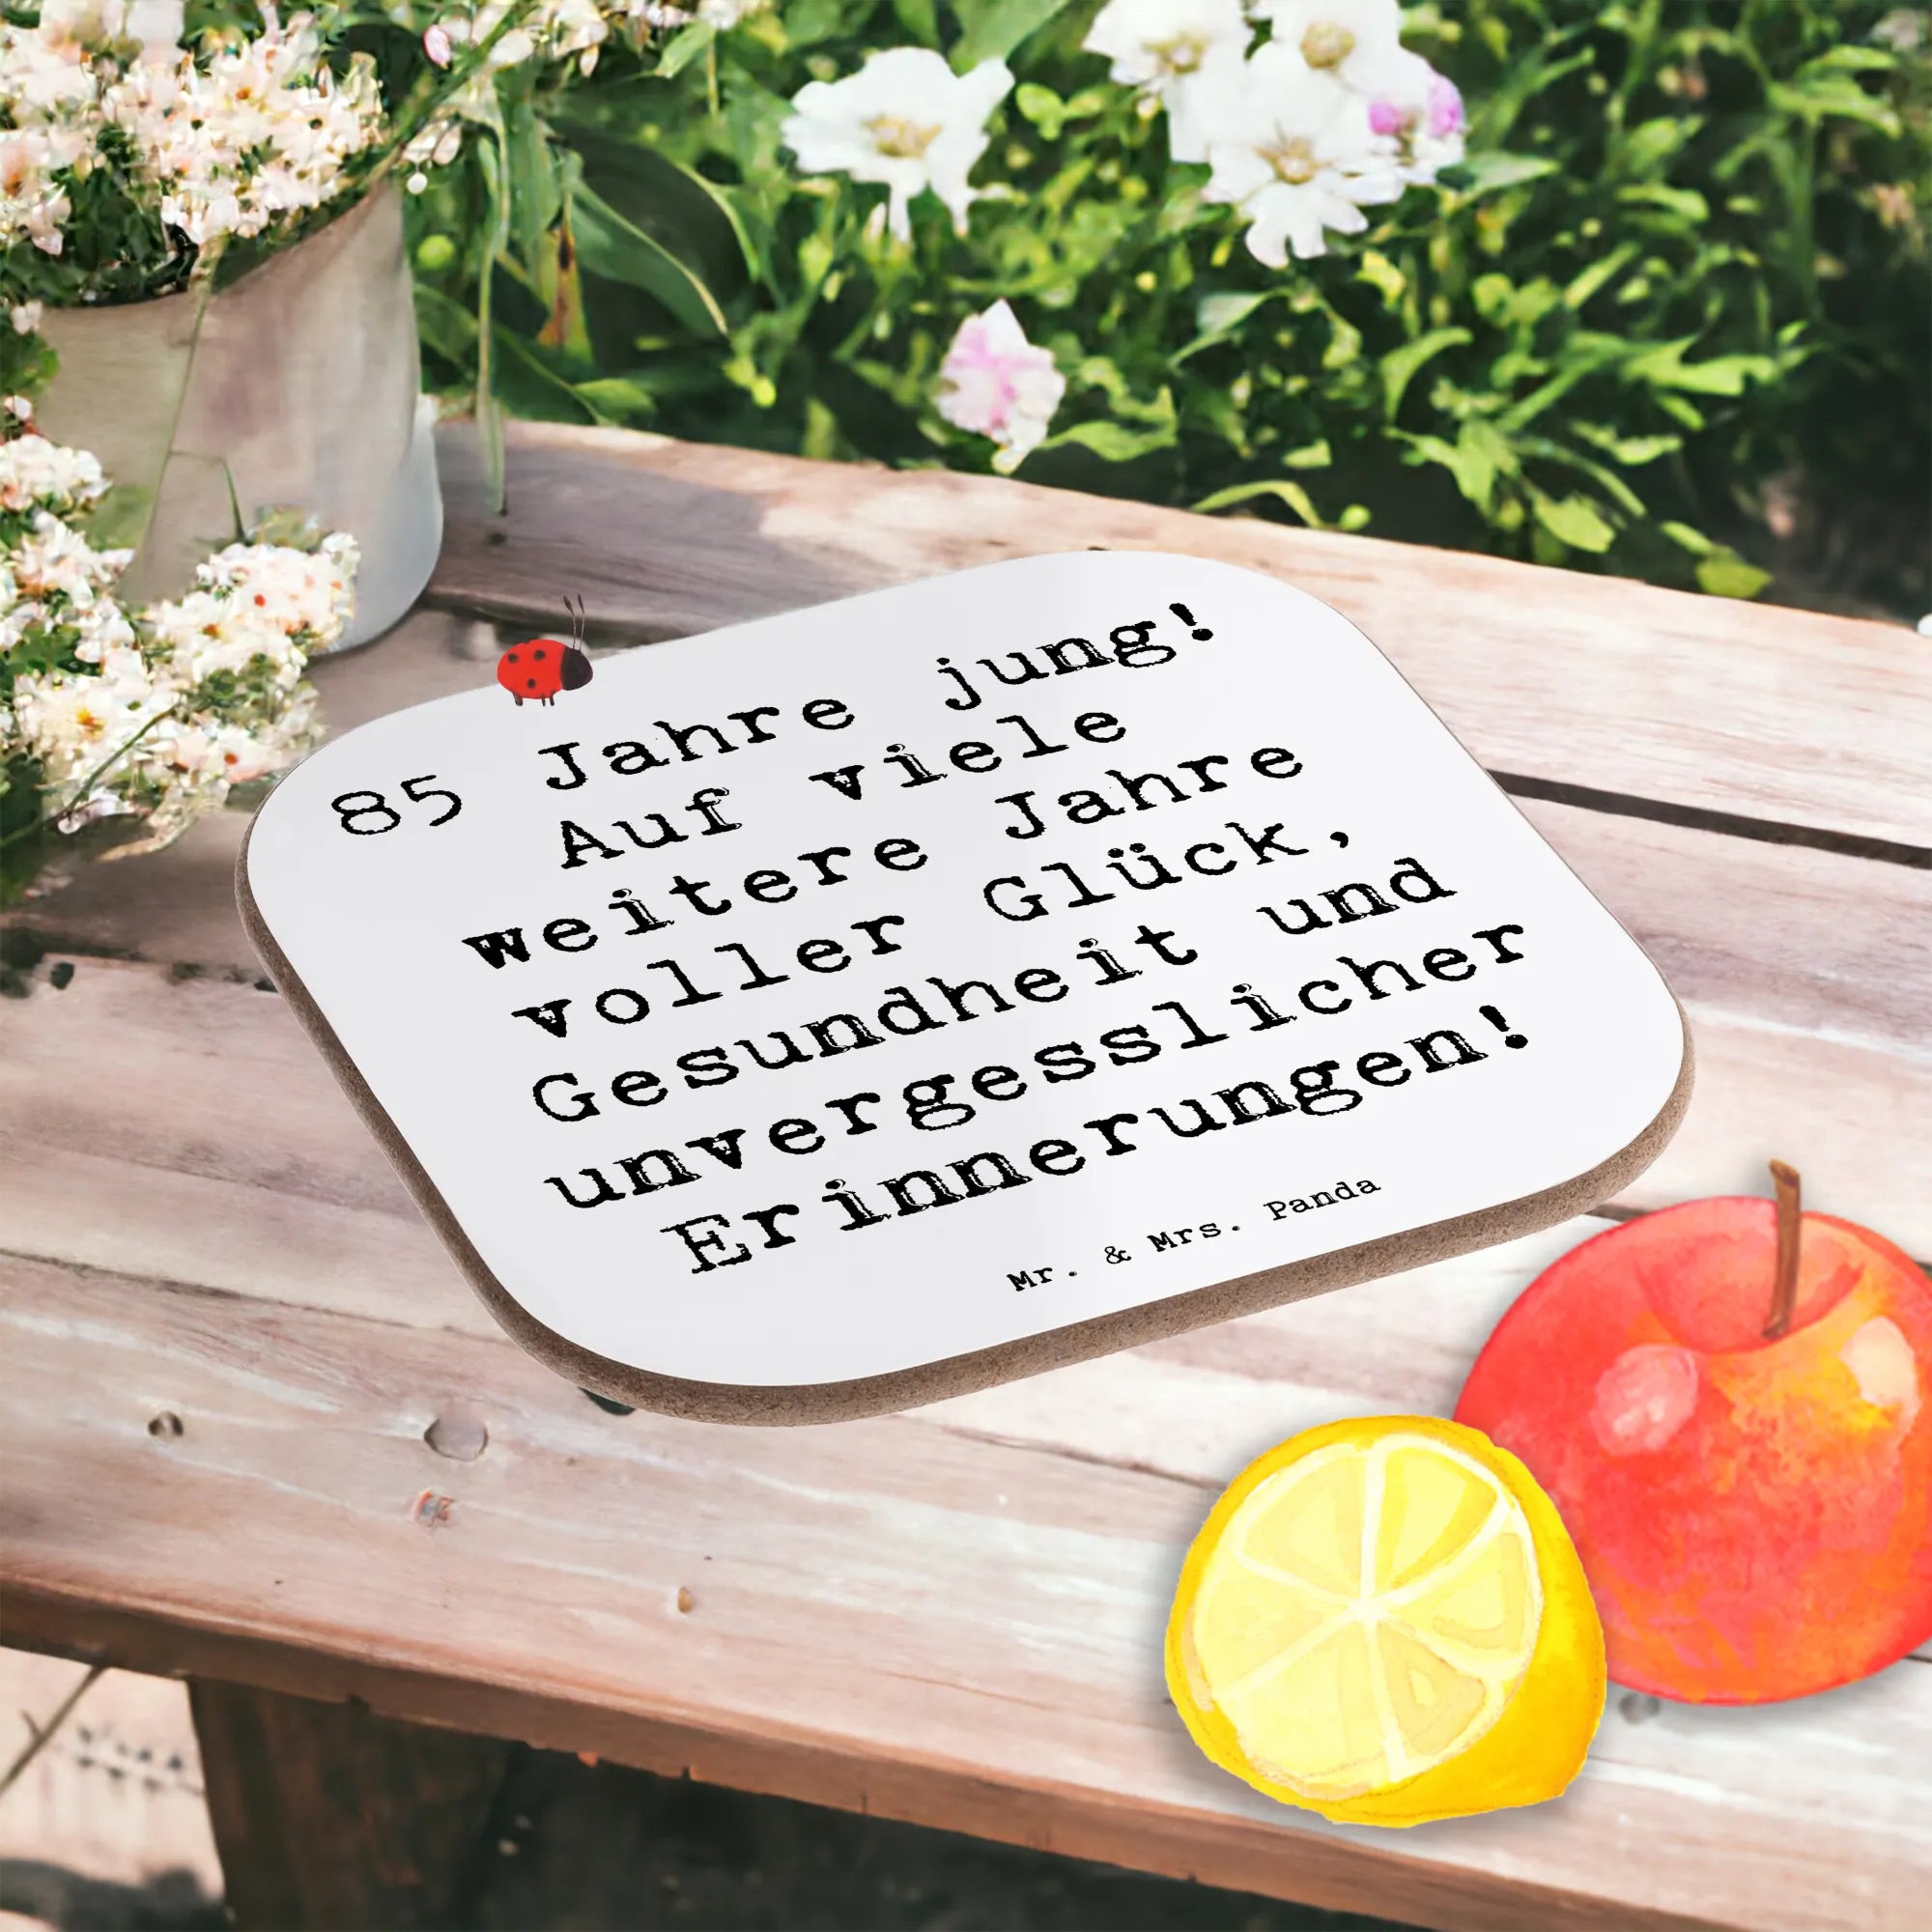 85 Jahre jung!
Auf viele
weitere Jahre
voller Glück,
Gesundheit und
unvergesslicher
Erinnerungen!
Mr. & Mrs. Panda